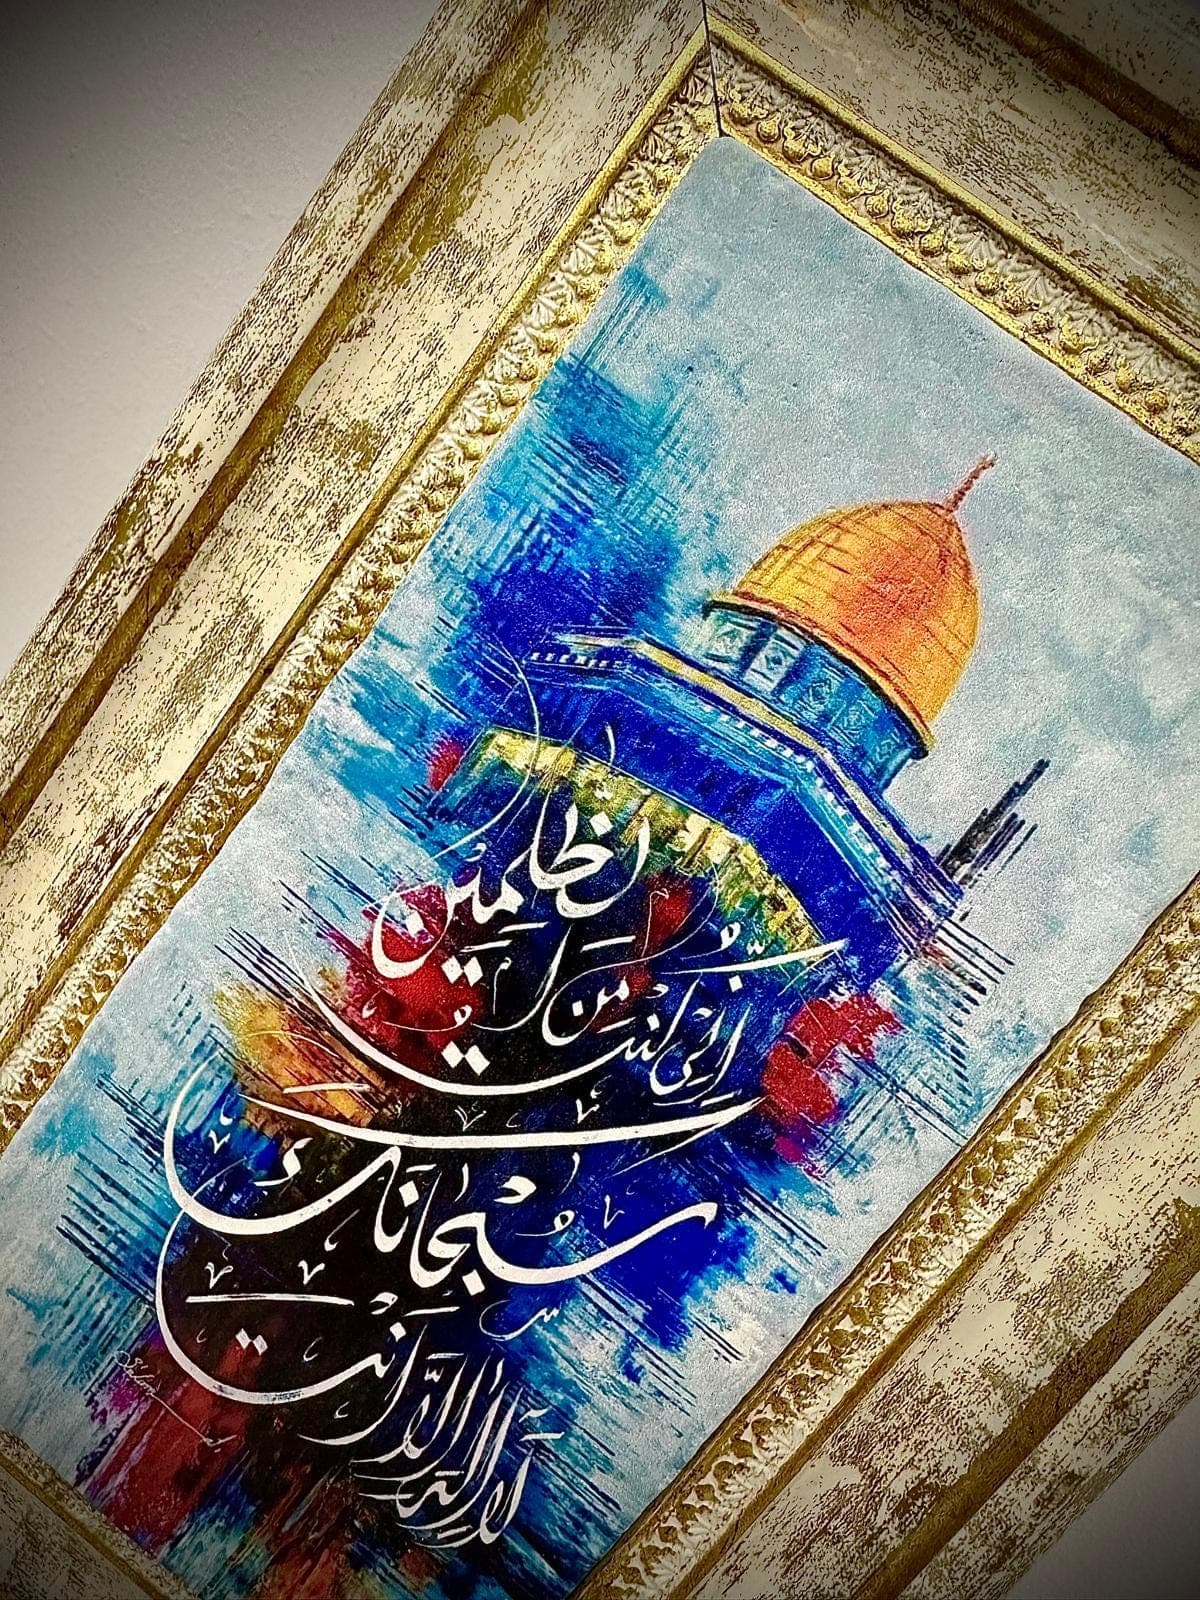 لَا إِلَٰهَ إِلَّا أَنْتَ
سُبْحَانَكَ
إِنِّي كُنْتُ مِنَ
الظَّلِمِينَ